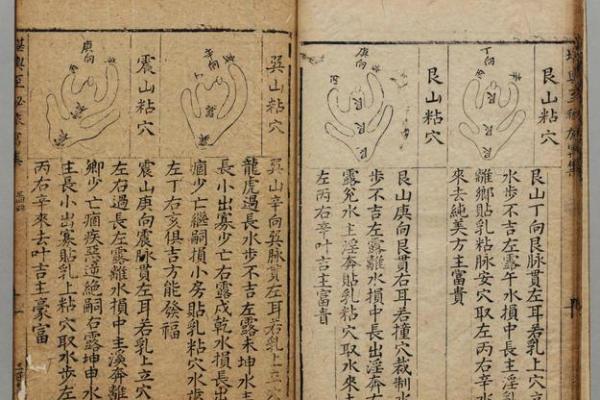 艮山粘穴
丁向
丙
艮
艮
艮山丁向艮脉貫左耳若乳上立穴
水步不吉左露午水損中長主淫亂
離鄉貼乳粘脉安穴取左丙右辛水
來去純美方主富貴
艮山粘穴
庚向
丙
艮
艮
艮
艮山庚向艮貫右耳若撞穴裁制水
步不吉左露離水損中長出淫奔右
露兌水主淫奔貼乳粘穴取水來去
左丙右辛叶吉主富貴
巽山粘穴
辛向
丁
巽山辛向巽脉貫左耳若乳上立穴
龍虎過長水步不吉左露未坤水主
長小出寡少亡右露戌乾水損長出
痼少亡繼嗣損小房貼乳粘穴水步
左丁右亥俱吉方能發福
震山粘穴
庚向
丙
震山庚向震脉貫左耳若乳上立穴
左右過長左露離水損中主淫奔離
鄉少亡痼疾惡逆絕嗣右露坤申水
主長小出寡貼乳上粘穴取水步左
丙右辛來去叶吉主豪富